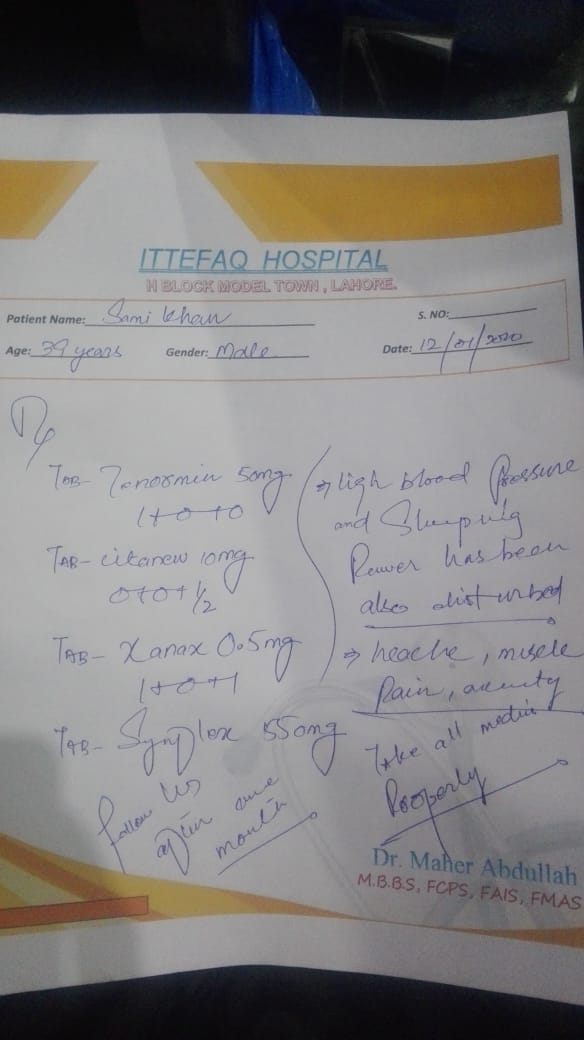 ITTEFAQ HOSPITAL
H BLOCK MODEL TOWN, LAHORE.
Patient Name: Sami Khan
S. NO:
Age: 39 years Gender: Male Date: 12/01/2020
Rx
TAB- Tenormin 50mg
1+0+0
TAB- citanew 10mg
0+0+1/2
TAB- Xanax 0.5mg
1+0+1
TAB- Synflex 550mg
follow us
after one
month
⇒ High blood Pressure
and Sleeping
Power has been
also disturbed
⇒ heache, muscle
Pain,
Take all medi
Properly
Dr. Maher Abdullah
M.B.B.S, FCPS, FAIS, FMAS